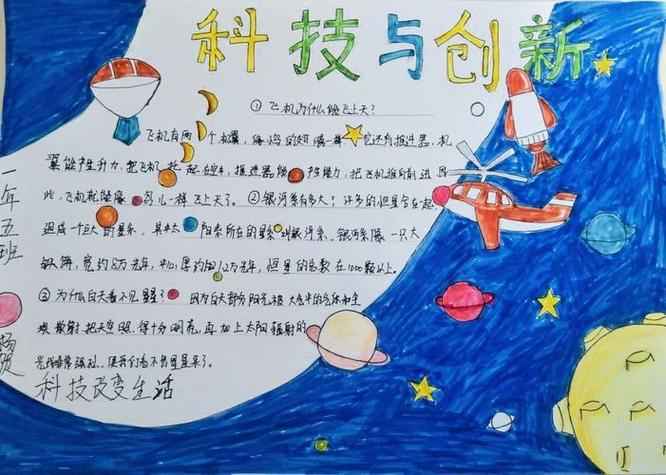 科技与创新
① 飞机为什么能飞上天？
飞机有两个机翼，像鸟的翅膀一样，它还有推进器，机
翼能产生升力，把飞机托起在空中，推进器能产生推力，把飞机推向前进
此，飞机就能像鸟儿一样飞上天了。②银河系有多大？许多的恒星合在起
组成一个巨大的星系，其中太阳系所在的星系叫银河系，银河系像一只大
铁饼，宽约8万光年，中心厚约1.2万光年，恒星的总数在1000颗以上。
③ 为什么白天看不见星星？因为白天部分阳光被大气中的气体和尘
埃散射把天空照得十分明亮，再加上太阳辐射的
光线非常强烈，使我们看不出星星了。
科技改变生活
一年五班